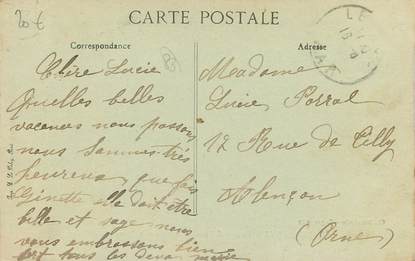 20 €
CARTE POSTALE
Correspondance
Adresse
Chère Lucie
Quelles belles
vacances nous passons
nous sommes très
heureux que fait
Ginette elle doit être
belle et sage nous
vous embrassons bien
fort tous les deux
Madame
Lucie
12 Rue de
Alençon
(Orne)